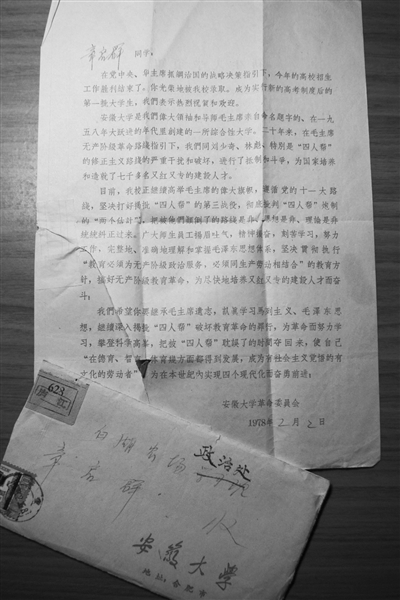 章启群 同学:
在党中央、华主席抓纲治国的战略决策指引下,今年的高校招生
工作胜利结束了。你光荣地被我校录取,成为实行新的高考制度后的
第一批大学生,我们表示热烈祝贺和欢迎。
安徽大学是我们伟大领袖和导师毛主席亲自命名题字的、在一九
五八年大跃进的年代里创建的一所综合性大学。二十年来,在毛主席
无产阶级革命路线指引下,我们同刘少奇、林彪、特别是“四人帮”
的修正主义路线的严重干扰和破坏,进行了抵制和斗争,为国家培养
和造就了七千多名又红又专的建设人才。
目前,我校正继续高举毛主席的伟大旗帜,遵循党的十一大路
线,坚决打好揭批“四人帮”的第三战役,彻底批判“四人帮”炮制
的“两个估计”,把被他们颠倒了的路线是非、思想是非、理论是非
统统纠正过来。广大师生员工扬眉吐气,精神振奋,刻苦学习,努力
工作,完整地、准确地理解和掌握毛泽东思想体系,坚决贯彻执行
“教育必须为无产阶级政治服务,必须同生产劳动相结合”的教育方
针,搞好无产阶级教育革命,为尽快地培养又红又专的建设人才而奋
斗;
我们希望你要继承毛主席遗志,认真学习马列主义、毛泽东思
想,继续深入揭批“四人帮”破坏教育革命的罪行,为革命而努力学
习,攀登科学高峯,把被“四人帮”耽误了的时间夺回来,使自己
“在德育、智育、体育几方面都得到发展,成为有社会主义觉悟的有
文化的劳动者”,为在本世纪内实现四个现代化而奋勇前进;
安徽大学革命委员会
1978年2月2日
623
白湖农场
政治处
章启群 收
安徽大学
地址:合肥市